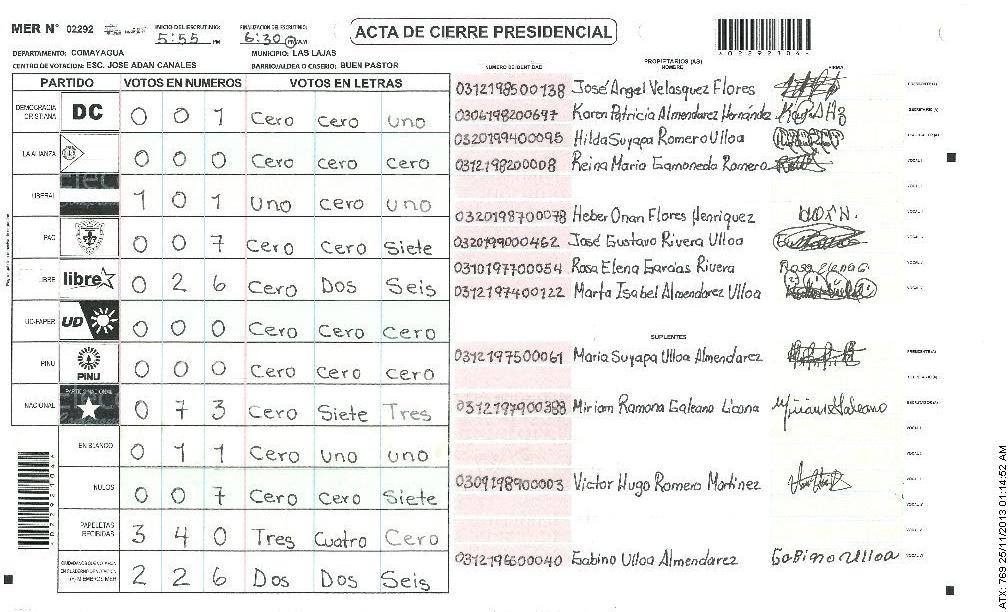 MER N° 02292 INICIO DEL ESCRUTINIO: 5:55 PM FINALIZACION DEL ESCRUTINIO: 6:30 PM/AM ACTA DE CIERRE PRESIDENCIAL
DEPARTAMENTO: COMAYAGUA MUNICIPIO: LAS LAJAS
CENTRO DE VOTACION: ESC. JOSE ADAN CANALES BARRIO/ALDEA O CASERIO: BUEN PASTOR
A02292104A
PARTIDO VOTOS EN NUMEROS VOTOS EN LETRAS
DEMOCRACIA CRISTIANA DC 0 0 1 Cero cero uno
LA ALIANZA 0 0 0 Cero cero cero
LIBERAL 1 0 1 uno cero uno
PAC 0 0 7 Cero Cero Siete
LIBRE libre 0 2 6 Cero Dos Seis
UD-FAPER UD 0 0 0 Cero Cero Cero
PINU PINU 0 0 0 Cero cero cero
NACIONAL 0 7 3 Cero Siete Tres
EN BLANCO 0 1 1 Cero uno uno
NULOS 0 0 7 Cero Cero Siete
PAPELETAS RECIBIDAS 3 4 0 Tres Cuatro Cero
2 2 6 Dos Dos Seis
NUMERO DE IDENTIDAD PROPIETARIOS (AS) NOMBRE FIRMA
0312198500138 José Angel Velasquez Flores
0306198200697 Karen Patricia Almendarez Hernández
0320199400095 Hilda Suyapa Romero Ulloa
0312198200008 Reina Maria Gamoneda Romero
0320198700078 Heber Onan Flores Henriquez
0320199000462 José Gustavo Rivera Ulloa
0310197700054 Rosa Elena Garcias Rivera Rosa Elena G.
0312197400122 Marta Isabel Almendarez Ulloa
SUPLENTES
0312197500061 Maria Suyapa Ulloa Almendarez
0312197900388 Miriam Ramona Galeano Licona
0309198900003 Victor Hugo Romero Martinez
0312196600040 Gabino Ulloa Almendarez Gabino Ulloa
ATX: 769 25/11/2013 01:14:52 AM